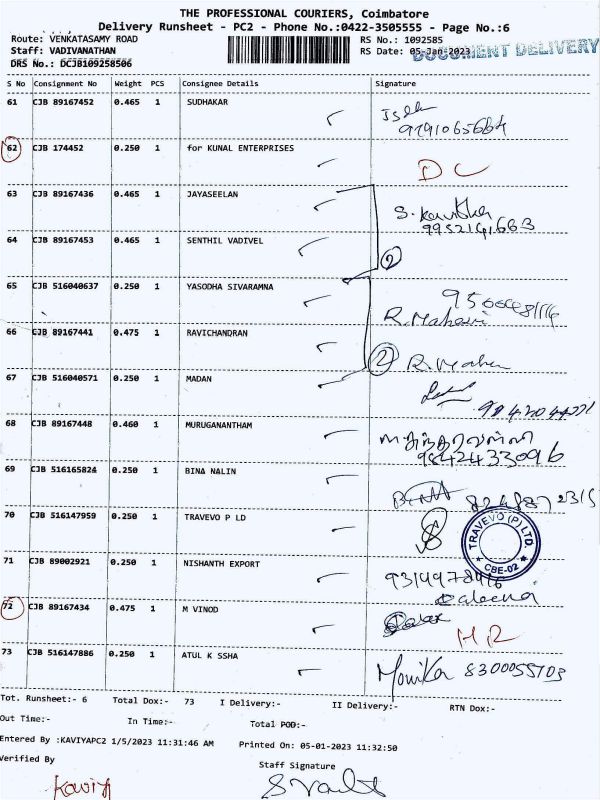 THE PROFESSIONAL COURIERS, Coimbatore
Delivery Runsheet - PC2 - Phone No.:0422-3505555 - Page No.:6
Route: VENKATASAMY ROAD RS No.: 1092585
Staff: VADIVANATHAN RS Date: 05-Jan-2023 DOCUMENT DELIVERY
DRS No.: DCJB109258506
S No Consignment No Weight PCS Consignee Details Signature
61 CJB 89167452 0.465 1 SUDHAKAR
62 CJB 174452 0.250 1 for KUNAL ENTERPRISES
DC
63 CJB 89167436 0.465 1 JAYASEELAN
S. Kavitha
64 CJB 89167453 0.465 1 SENTHIL VADIVEL
2
65 CJB 516040637 0.250 1 YASODHA SIVARAMNA
R. Mahesvi
66 CJB 89167441 0.475 1 RAVICHANDRAN
2
67 CJB 516040571 0.250 1 MADAN
68 CJB 89167448 0.460 1 MURUGANANTHAM
9842433096
69 CJB 516165824 0.250 1 BINA NALIN
70 CJB 516147959 0.250 1 TRAVEVO P LD
TRAVEVO (P) LTD.
CBE-02
71 CJB 89002921 0.250 1 NISHANTH EXPORT
72 CJB 89167434 0.475 1 M VINOD
73 CJB 516147886 0.250 1 ATUL K SSHA
Monika 8300055103
Tot. Runsheet:- 6 Total Dox:- 73 I Delivery:- II Delivery:- RTN Dox:-
Out Time:- In Time:- Total POD:-
Entered By :KAVIYAPC2 1/5/2023 11:31:46 AM Printed On: 05-01-2023 11:32:50
Verified By Staff Signature
Kaviya